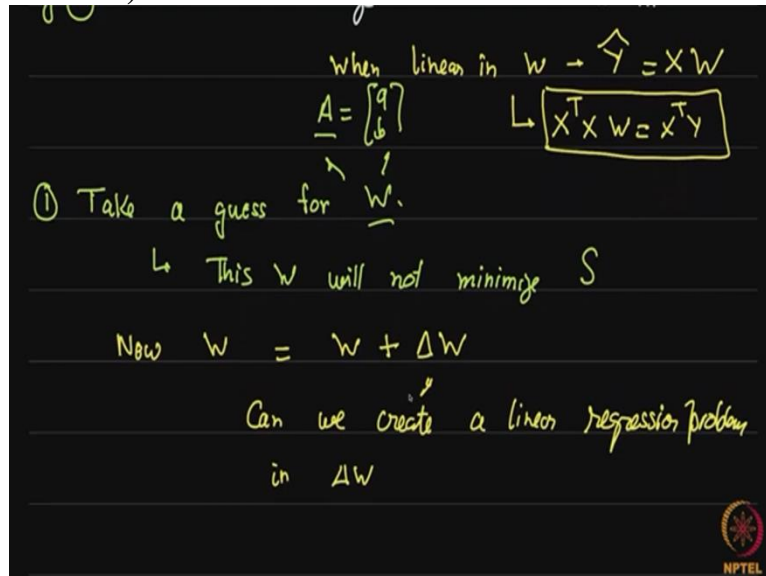 When linear in W → Ŷ = XW
A = [a
b]
↳ XᵀX W = XᵀY
① Take a guess for W.
↳ This W will not minimize S
New W = W + ΔW
Can we create a linear regression problem
in ΔW
NPTEL